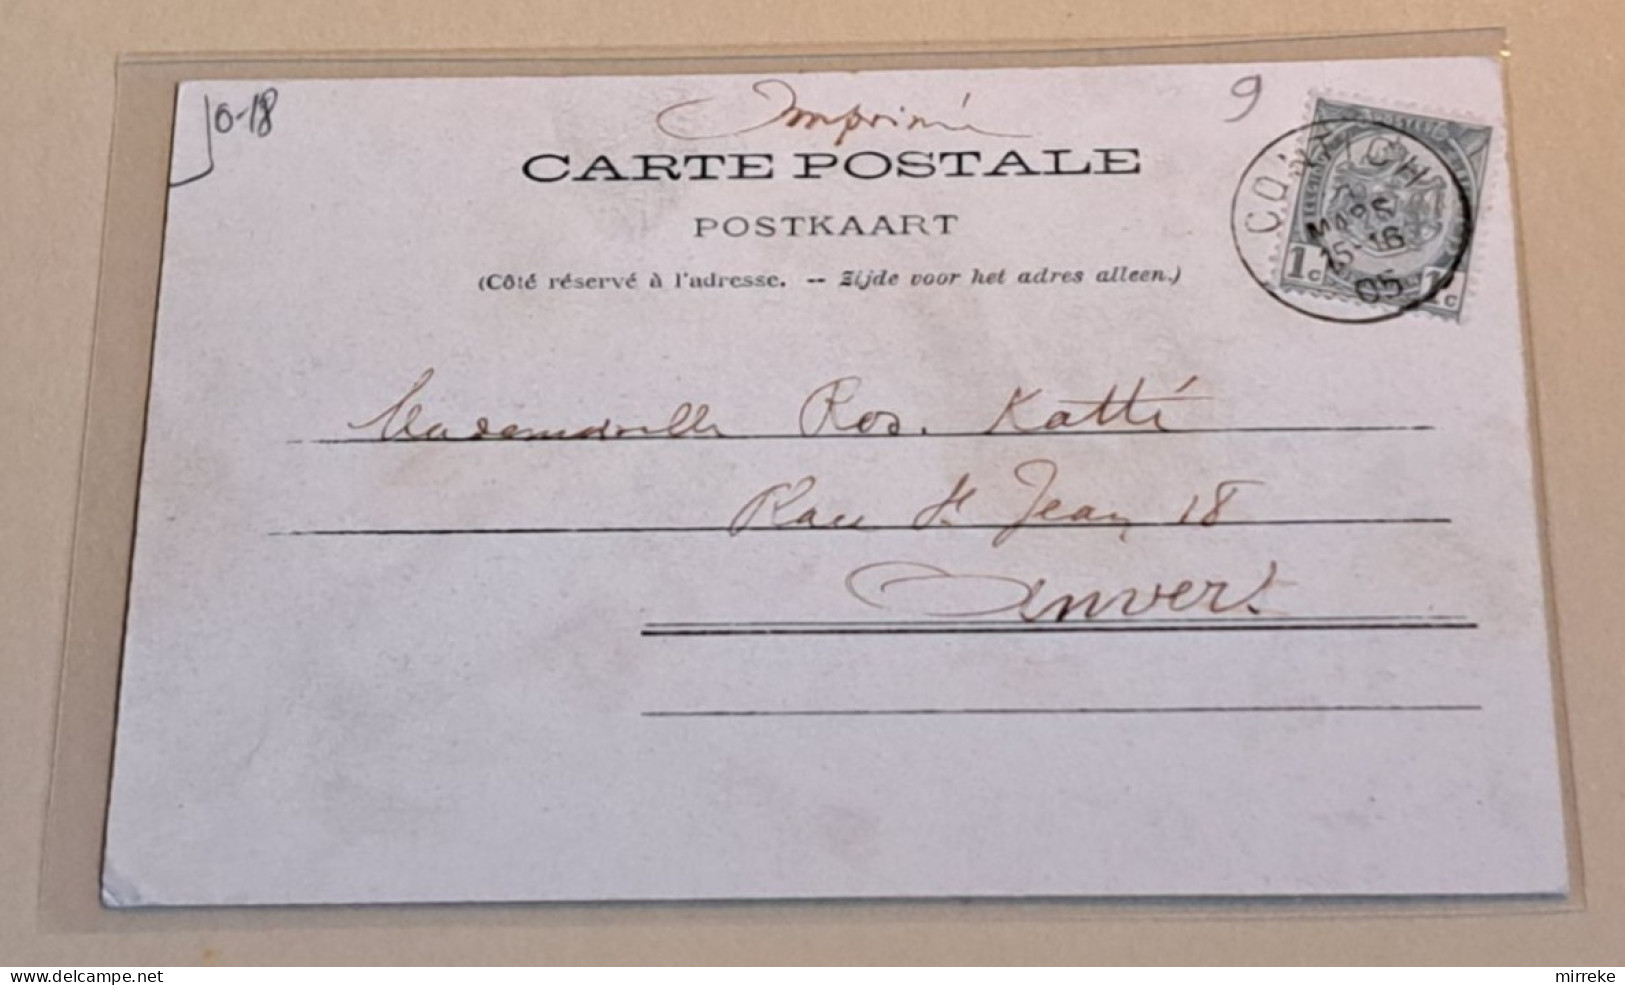 Jo-18
9
Imprimé
CARTE POSTALE
POSTKAART
(Côté réservé à l'adresse. -- Zijde voor het adres alleen.)
CONTICH
MARS
15-16
05
1c 1c
Mademoiselle Ros. Katté
Place St Jean 18
Anvers
www.delcampe.net
mirreke